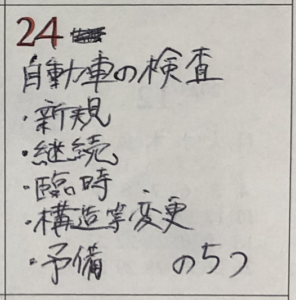 24
自動車の検査
・新規
・継続
・臨時
・構造等変更
・予備 のちつ